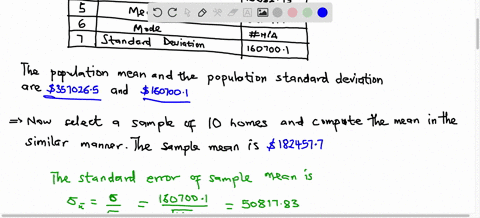 5 Me
6 Mode #N/A
7 Standard Deviation 160700.1
The population mean and the population standard deviation
are $357026.5 and $160700.1
⇒ Now select a sample of 10 homes and compute the mean in the
similar manner. The sample mean is $182457.7
The standard error of sample mean is
σx̄ = σ = 160700.1 = 50817.83